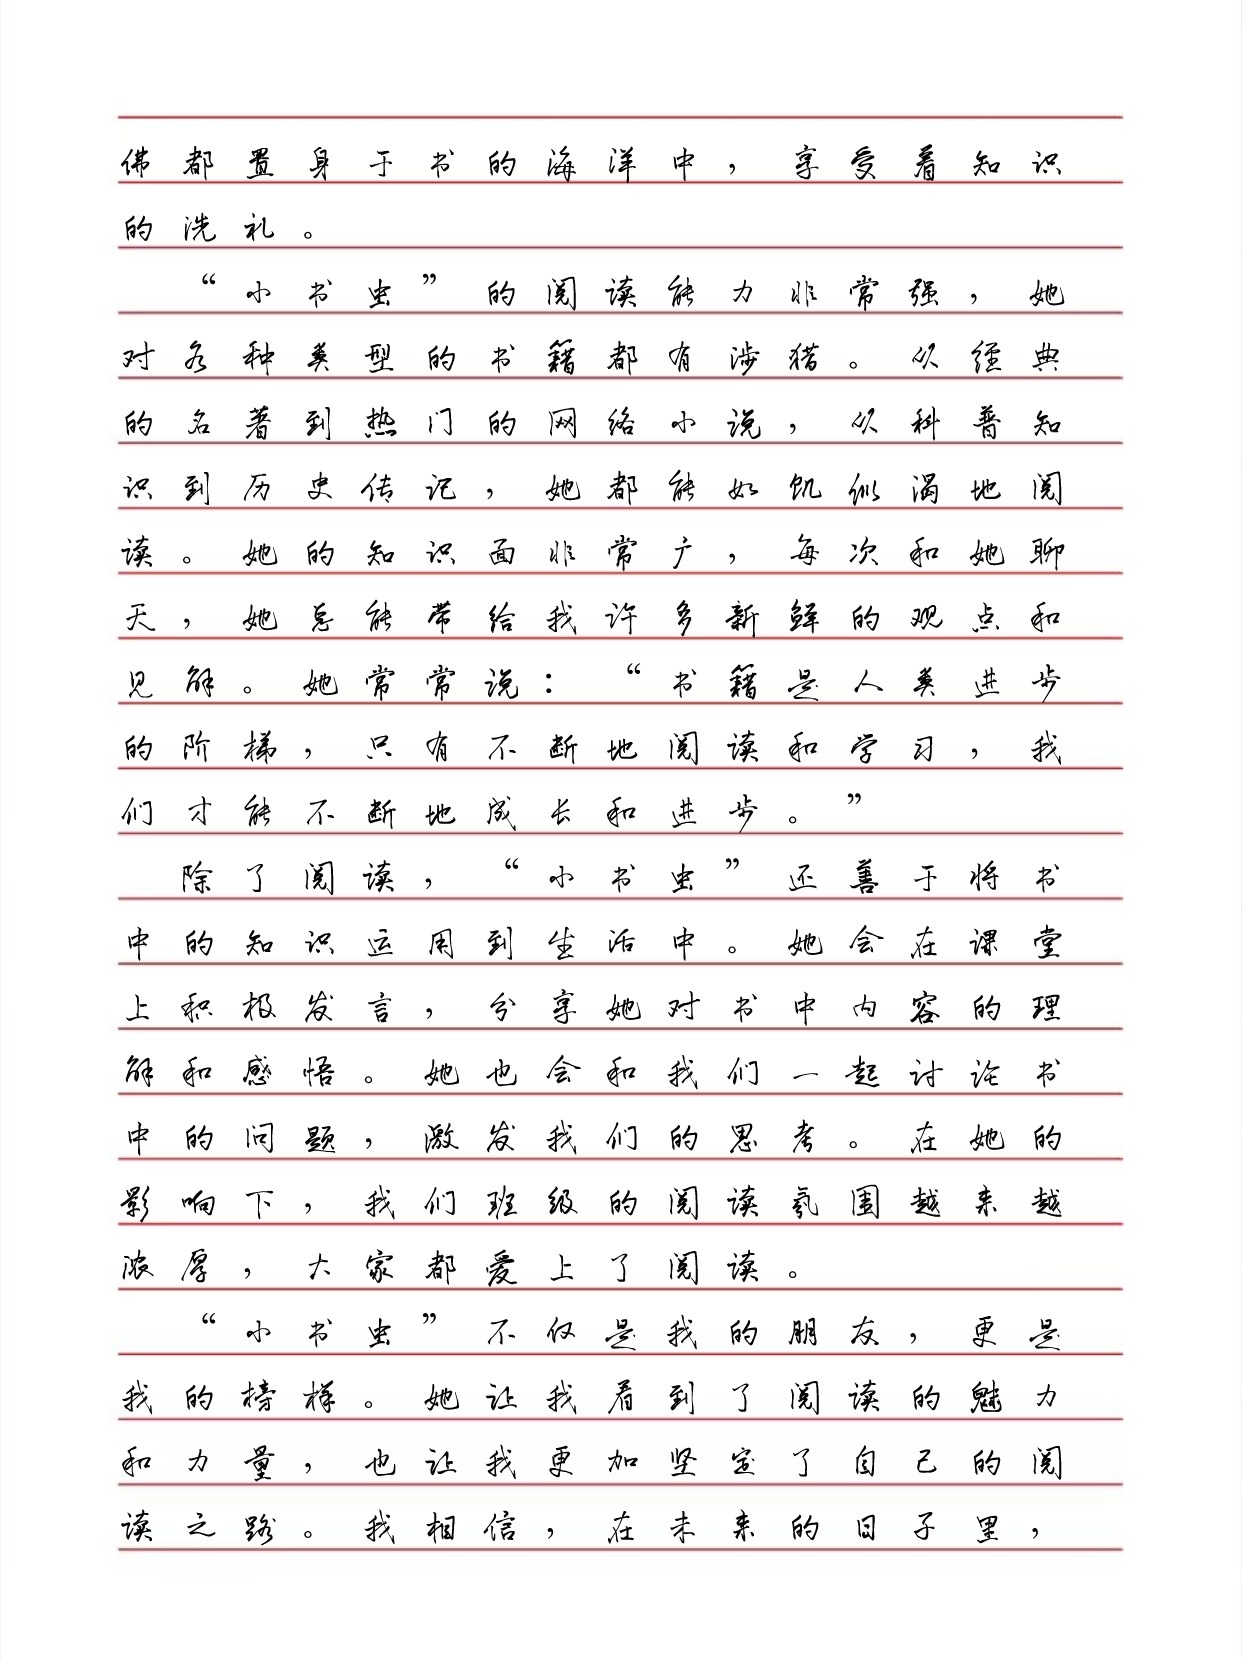 佛都置身于书的海洋中，享受着知识
的洗礼。
“小书虫”的阅读能力非常强，她
对各种类型的书籍都有涉猎。从经典
的名著到热门的网络小说，从科普知
识到历史传记，她都能如饥似渴地阅
读。她的知识面非常广，每次和她聊
天，她总能带给我许多新鲜的观点和
见解。她常常说：“书籍是人类进步
的阶梯，只有不断地阅读和学习，我
们才能不断地成长和进步。”
除了阅读，“小书虫”还善于将书
中的知识运用到生活中。她会在课堂
上积极发言，分享她对书中内容的理
解和感悟。她也会和我们一起讨论书
中的问题，激发我们的思考。在她的
影响下，我们班级的阅读氛围越来越
浓厚，大家都爱上了阅读。
“小书虫”不仅是我的朋友，更是
我的榜样。她让我看到了阅读的魅力
和力量，也让我更加坚定了自己的阅
读之路。我相信，在未来的日子里，